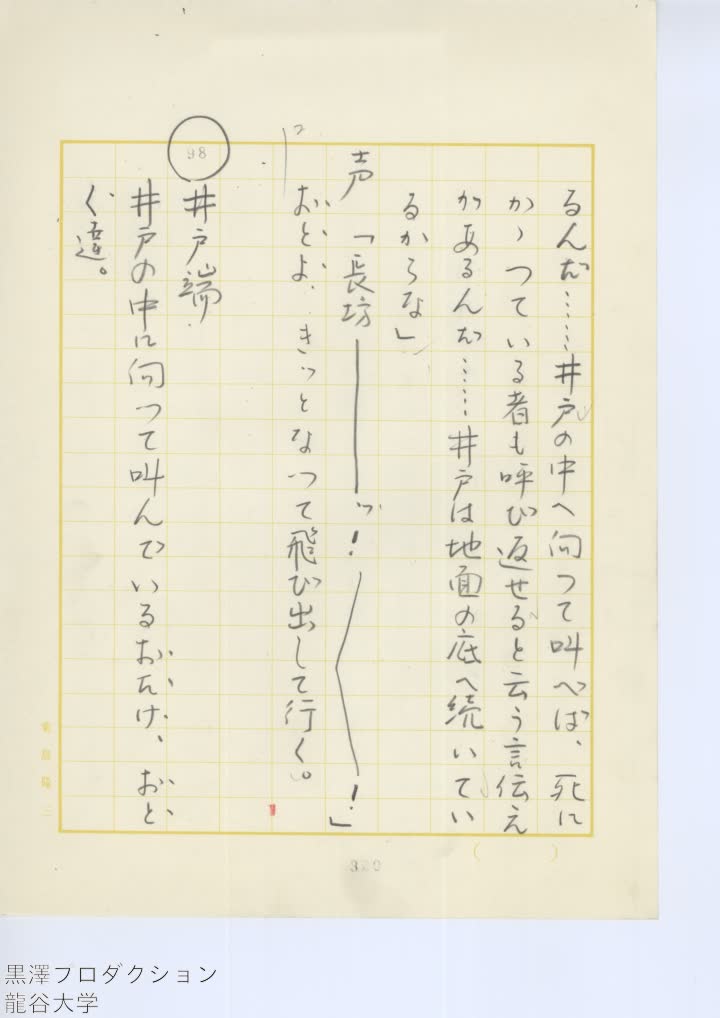 るんだ……井戸の中へ向つて叫べば、死に
かゝつている者も呼び返せると云う言伝え
があるんだ……井戸は地面の底へ続いてい
るからな」
声「長坊――――ッ！〱！」
おとよ、きッとなつて飛び出して行く。
98
井戸端
井戸の中に向つて叫んでいるおたけ、おと
く達。
320
黒澤プロダクション
龍谷大学